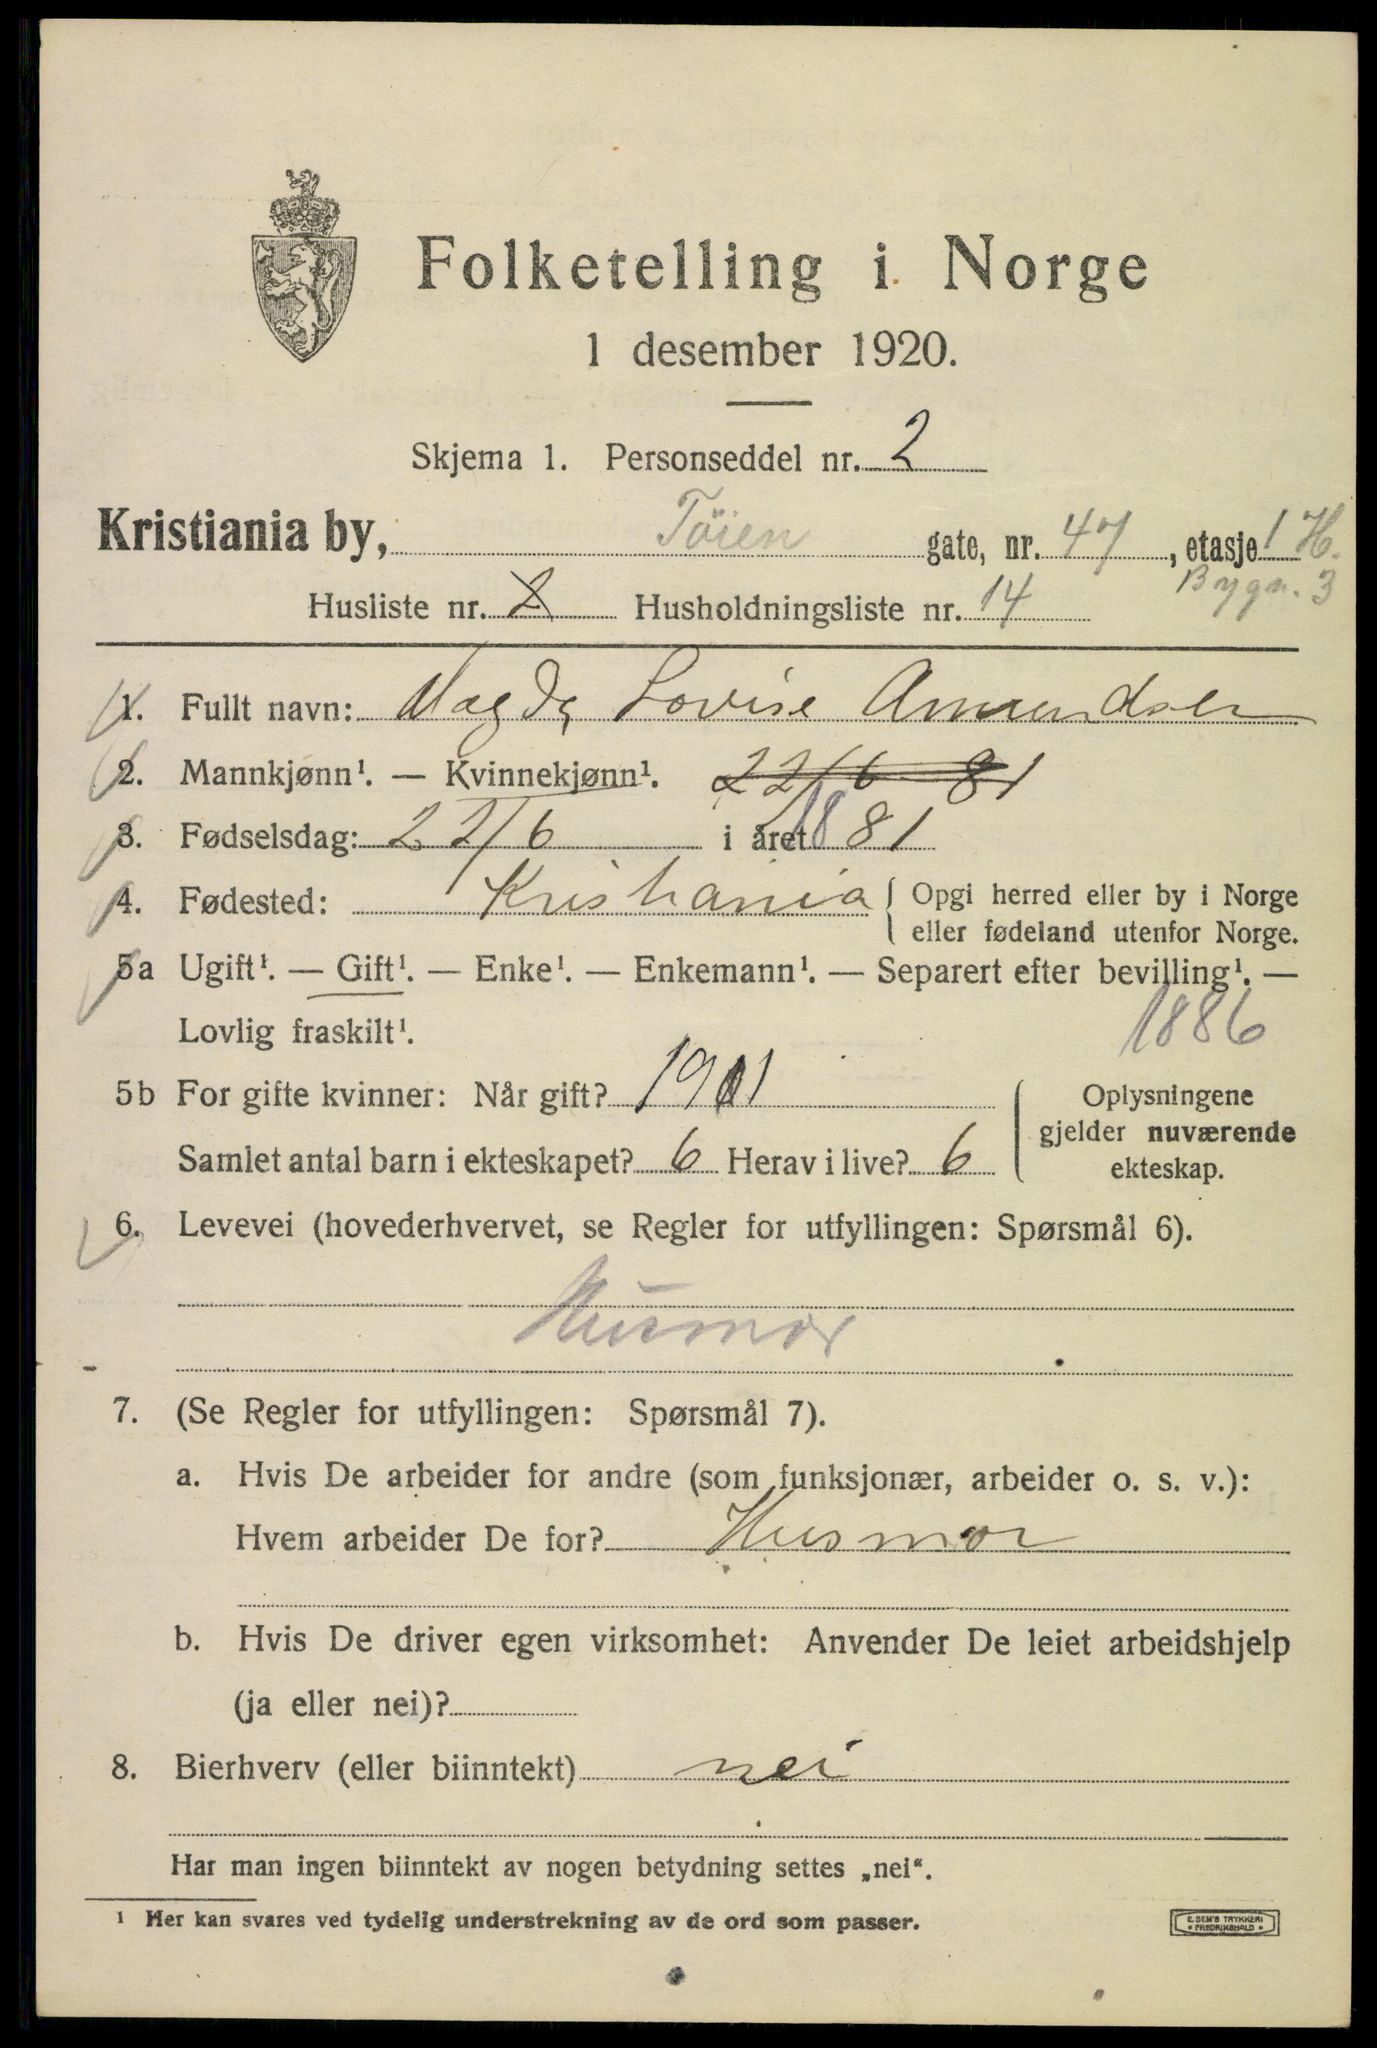 Folketelling i Norge
1 desember 1920.
Skjema 1. Personseddel nr. 2
Kristiania by, Töien gate, nr. 47, etasje 1 H.
Bygn. 3
Husliste nr. 2 Husholdningsliste nr. 14
1. Fullt navn: Magda Lovise Amundsen
2. Mannkjønn¹. — Kvinnekjønn¹. 22/6 81
3. Fødselsdag: 22/6 i året 1881
4. Fødested: Kristiania { Opgi herred eller by i Norge
eller fødeland utenfor Norge.
5a Ugift¹. — Gift¹. — Enke¹. — Enkemann¹. — Separert efter bevilling¹. —
Lovlig fraskilt¹. 1886
5b For gifte kvinner: Når gift? 1901
Samlet antal barn i ekteskapet? 6 Herav i live? 6
Oplysningene
gjelder nuværende
ekteskap.
6. Levevei (hovederhvervet, se Regler for utfyllingen: Spørsmål 6).
Husmor
7. (Se Regler for utfyllingen: Spørsmål 7).
a. Hvis De arbeider for andre (som funksjonær, arbeider o. s. v.):
Hvem arbeider De for? Husmor
b. Hvis De driver egen virksomhet: Anvender De leiet arbeidshjelp
(ja eller nei)?
8. Bierhverv (eller biinntekt) nei
Har man ingen biinntekt av nogen betydning settes „nei“.
¹ Her kan svares ved tydelig understrekning av de ord som passer.
E. SEM'S TRYKKERI
• FREDRIKSHALD •